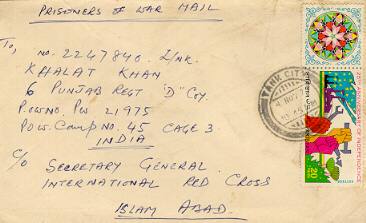 PRISONERS OF WAR MAIL
To,
No. 2247840 L/NK.
KHALAT KHAN
6 PUNJAB REGT "D" COY.
P.OW NO. PW 21975
P.OW. Camp NO. 45 CAGE 3
INDIA
C/o SECRETARY GENERAL
INTERNATIONAL RED CROSS
ISLAM ABAD.
TANK CITY
25TH ANNIVERSARY OF INDEPENDENCE
20